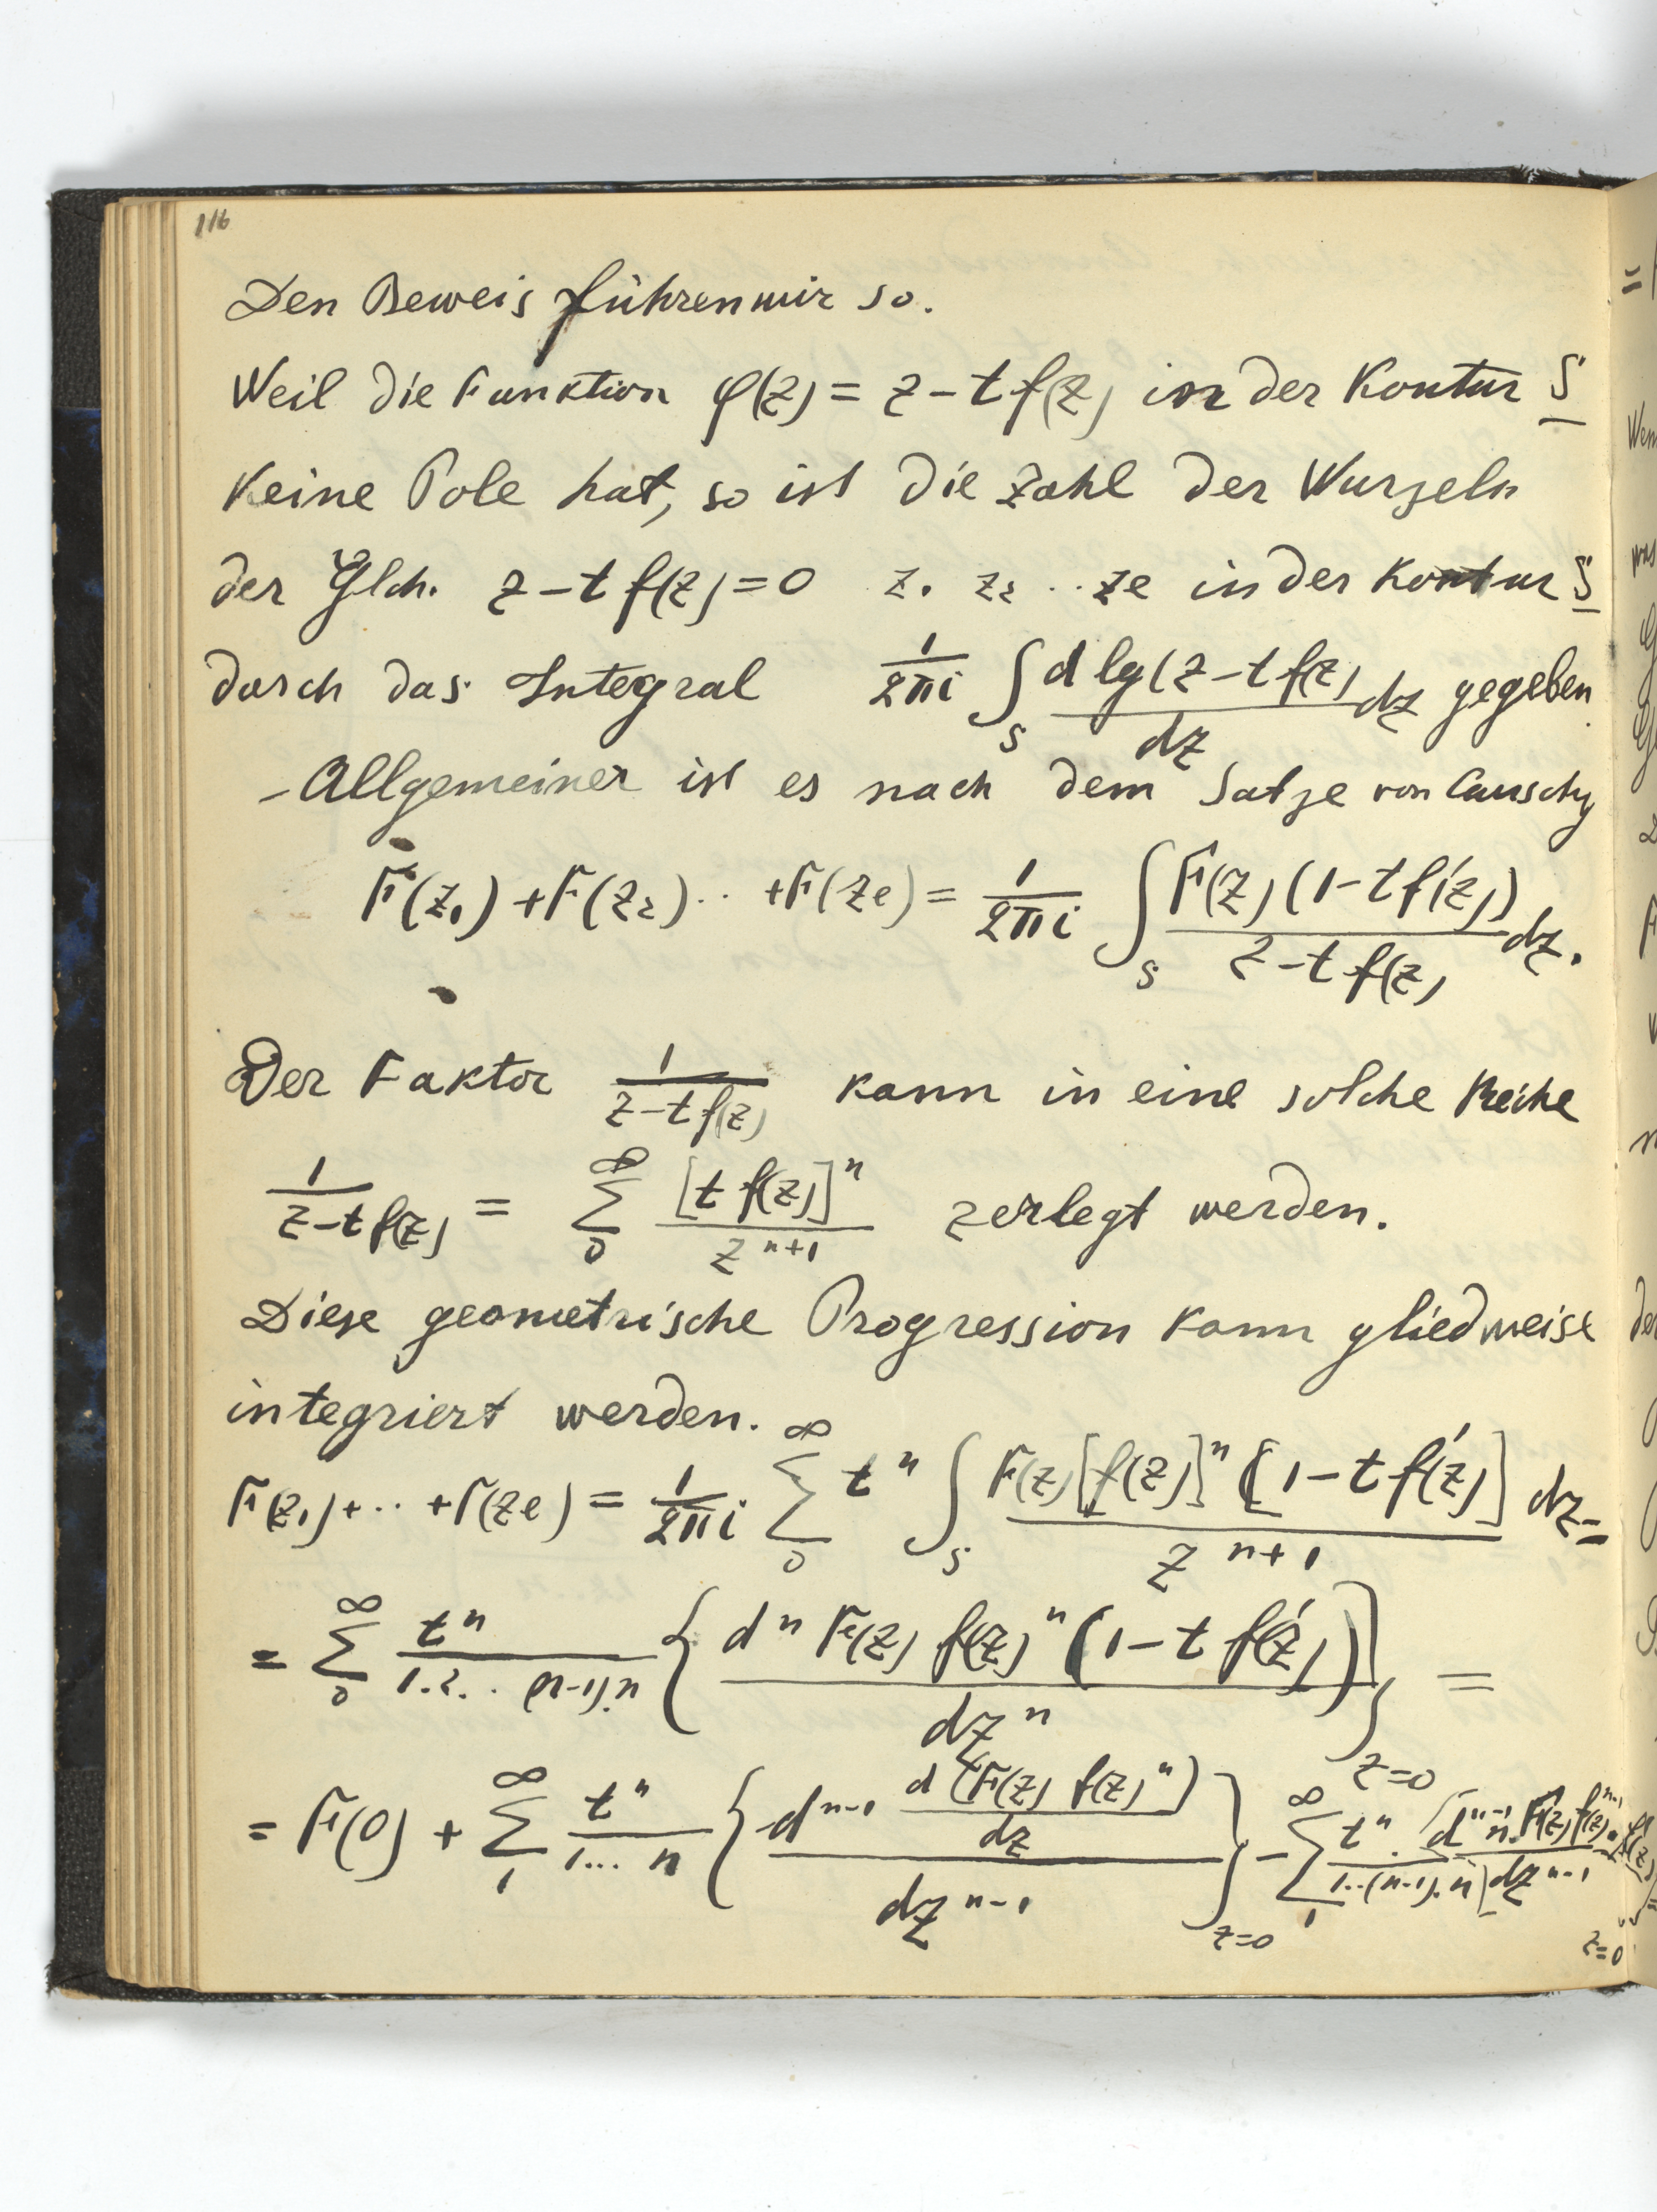 116
Den Beweis führen wir so.
Weil die Funktion φ(z) = z − t f(z) in der Kontur S
keine Pole hat, so ist die Zahl der Wurzeln
der Glch. z − t f(z) = 0 z₁ z₂ .. ze in der Kontur S
durch das Integral 1/2πi ∫_S d lg(z − t f(z)/dz dz gegeben
– Allgemeiner ist es nach dem Satze von Causchy
F(z₁) + F(z₂) .. + F(ze) = 1/2πi ∫_S F(z) (1 − t f'(z))/z − t f(z) dz.
Der Faktor 1/z − t f(z) kann in eine solche Reihe
1/z − t f(z) = ∑_0^∞ [t f(z)]ⁿ/z^{n+1} zerlegt werden.
Diese geometrische Progression kann gliedweise
integriert werden.
F(z₁) + .. + F(ze) = 1/2πi ∑_0^∞ tⁿ ∫_S F(z) [f(z)]ⁿ [1 − t f'(z)]/z^{n+1} dz =
= ∑_0^∞ tⁿ/1.2. . (n−1).n {dⁿ F(z) f(z)ⁿ (1 − t f'(z))/dzⁿ}_{z=0} =
= F(0) + ∑_1^∞ tⁿ/1... n {d^{n−1} d (F(z) f(z)ⁿ)/dz / dz^{n−1}}_{z=0} − ∑_1^∞ tⁿ/1..(n−1).n {d^{n−1} n. F(z) f(z)^{n−1}. f'(z)/dz^{n−1}}_{z=0} =